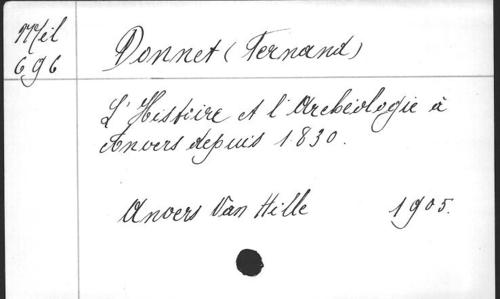 Mél
696
Donnet (Fernand)
L'Histoire et l'Archéologie à
Anvers depuis 1830.
Anvers Van Hille 1905.